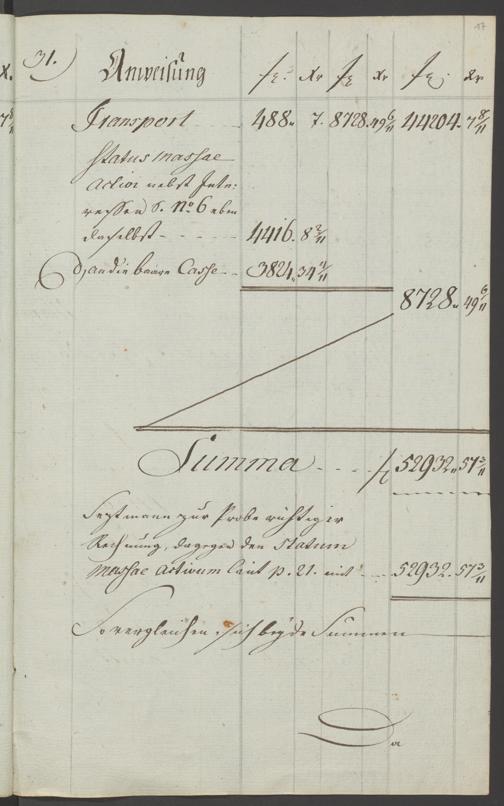 17
31.) Anweisung f. Xr f Xr f. Xr
Transport 488. 7. 8728. 49 6/11 44204. 7 8/11
Status Massae
Activi nebst Inte:
ressen S. No. 6 eben
daselbst - - - - 4416. 8 2/11
d, an die baare Casse - - 3824. 34 4/11
8728. 49 6/11
Summa - - - - f 52932. 57 3/11
zur Probe richtiger
Rechnung, dagegen den Statum
Massae Activum laut p. 21. mit - - 52932. 57 3/11
So vergleichen sich beyde Summen